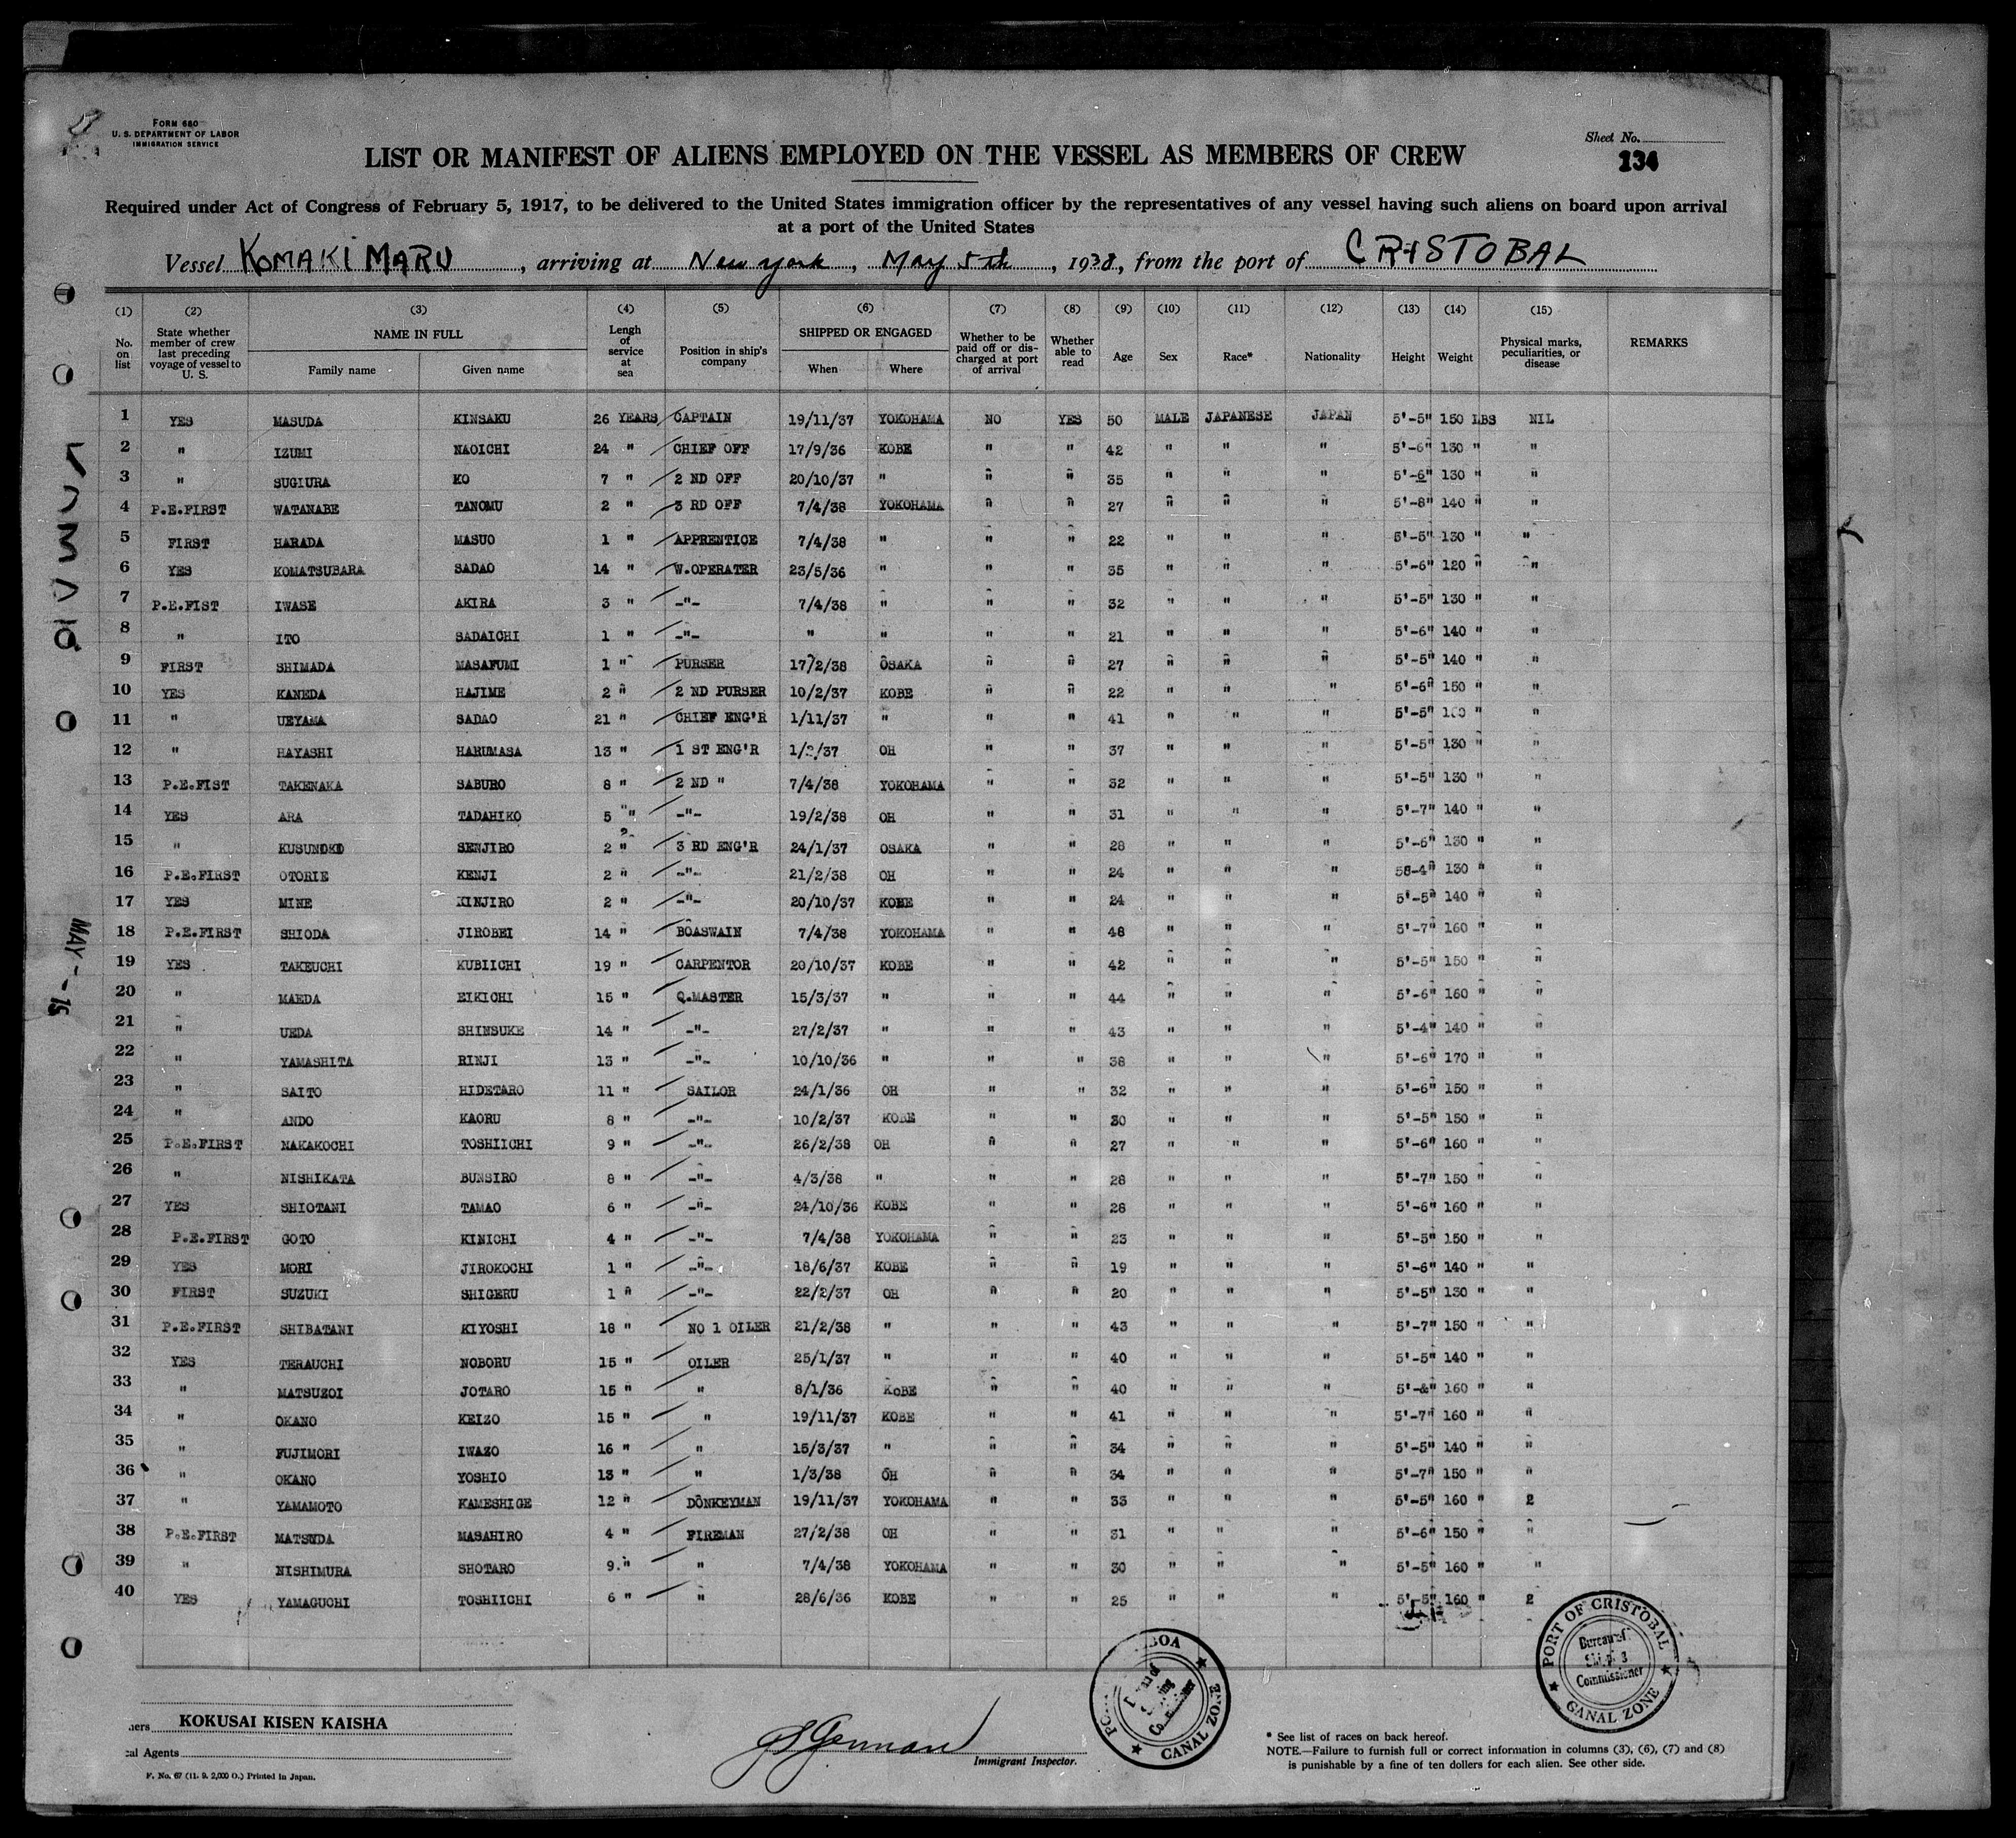 FORM 680
U. S. DEPARTMENT OF LABOR
IMMIGRATION SERVICE
Sheet No.
134
LIST OR MANIFEST OF ALIENS EMPLOYED ON THE VESSEL AS MEMBERS OF CREW
Required under Act of Congress of February 5, 1917, to be delivered to the United States immigration officer by the representatives of any vessel having such aliens on board upon arrival
at a port of the United States
Vessel KOMAKI MARU, arriving at New york, May 5th, 1938, from the port of CRISTOBAL
(1) (2) (3) (4) (5) (6) (7) (8) (9) (10) (11) (12) (13) (14) (15)
No. on list State whether member of crew last preceding voyage of vessel to U. S. NAME IN FULL Family name Given name Lengh of service at sea Position in ship's company SHIPPED OR ENGAGED When Where Whether to be paid off or discharged at port of arrival Whether able to read Age Sex Race* Nationality Height Weight Physical marks, peculiarities, or disease REMARKS
1 YES MASUDA KINSAKU 26 YEARS CAPTAIN 19/11/37 YOKOHAMA NO YES 50 MALE JAPANESE JAPAN 5'-5" 150 LBS NIL
2 " IZUMI NAOICHI 24 " CHIEF OFF 17/9/36 KOBE " " 42 " " " 5'-6" 130 " "
3 " SUGIURA KO 7 " 2 ND OFF 20/10/37 " " " 35 " " " 5'-6" 130 " "
4 P.E.FIRST WATANABE TANOMU 2 " 3 RD OFF 7/4/38 YOKOHAMA " " 27 " " " 5'-8" 140 " "
5 FIRST HARADA MASUO 1 " APPRENTICE 7/4/38 " " " 22 " " " 5'-5" 130 " "
6 YES KOMATSUBARA SADAO 14 " W.OPERATER 23/5/36 " " " 35 " " " 5'-6" 120 " "
7 P.E.FIST IWASE AKIRA 3 " -"- 7/4/38 " " " 32 " " " 5'-5" 130 " "
8 " ITO SADAICHI 1 " -"- " " " " 21 " " " 5'-6" 140 " "
9 FIRST SHIMADA MASAFUMI 1 " PURSER 17/2/38 OSAKA " " 27 " " " 5'-5" 140 " "
10 YES KANEDA HAJIME 2 " 2 ND PURSER 10/2/37 KOBE " " 22 " " " 5'-6" 150 " "
11 " UEYAMA SADAO 21 " CHIEF ENG'R 1/11/37 " " " 41 " " " 5'-5" " "
12 " HAYASHI HARUMASA 13 " 1 ST ENG'R 1/2/37 OH " " 37 " " " 5'-5" 130 " "
13 P.E.FIST TAKENAKA SABURO 8 " 2 ND " 7/4/38 YOKOHAMA " " 32 " " " 5'-5" 130 " "
14 YES ARA TADAHIKO 5 " -"- 19/2/38 OH " " 31 " " " 5'-7" 140 " "
15 " KUSUNOKO SENJIRO 2 " 3 RD ENG'R 24/1/37 OSAKA " " 28 " " " 5'-6" 130 " "
16 P.E.FIRST OTORIE KENJI 2 " -"- 21/2/38 OH " " 24 " " " 58-4" 130 " "
17 YES MINE KINJIRO 2 " -"- 20/10/37 KOBE " " 24 " " " 5'-5" 140 " "
18 P.E.FIRST SHIODA JIROBEI 14 " BOASWAIN 7/4/38 YOKOHAMA " " 48 " " " 5'-7" 160 " "
19 YES TAKEUCHI KUBIICHI 19 " CARPENTOR 20/10/37 KOBE " " 42 " " " 5'-5" 150 " "
20 " MAEDA EIKICHI 15 " Q.MASTER 15/3/37 " " " 44 " " " 5'-6" 160 " "
21 " UEDA SHINSUKE 14 " -"- 27/2/37 " " " 43 " " " 5'-4" 140 " "
22 " YAMASHITA RINJI 13 " -"- 10/10/36 " " " 38 " " " 5'-6" 170 " "
23 " SAITO HIDETARO 11 " SAILOR 24/1/36 OH " " 32 " " " 5'-6" 150 " "
24 " ANDO KAORU 8 " -"- 10/2/37 KOBE " " 30 " " " 5'-5" 150 " "
25 P.E.FIRST NAKAKOCHI TOSHIICHI 9 " -"- 26/2/38 OH " " 27 " " " 5'-6" 160 " "
26 " NISHIKATA BUNSIRO 8 " -"- 4/3/38 " " " 28 " " " 5'-7" 150 " "
27 YES SHIOTANI TAMAO 6 " -"- 24/10/36 KOBE " " 28 " " " 5'-6" 160 " "
28 P.E.FIRST GOTO KINICHI 4 " -"- 7/4/38 YOKOHAMA " " 23 " " " 5'-5" 150 " "
29 YES MORI JIROKOCHI 1 " -"- 18/6/37 KOBE " " 19 " " " 5'-6" 140 " "
30 FIRST SUZUKI SHIGERU 1 " -"- 22/2/37 OH " " 20 " " " 5'-5" 130 " "
31 P.E.FIRST SHIBATANI KIYOSHI 18 " NO 1 OILER 21/2/38 " " " 43 " " " 5'-7" 150 " "
32 YES TERAUCHI NOBORU 15 " OILER 25/1/37 " " " 40 " " " 5'-5" 140 " "
33 " MATSUZOI JOTARO 15 " " 8/1/36 KOBE " " 40 " " " 5'-&" 160 " "
34 " OKANO KEIZO 15 " " 19/11/37 KOBE " " 41 " " " 5'-7" 160 " "
35 " FUJIMORI IWAZO 16 " " 15/3/37 " " " 34 " " " 5'-5" 140 " "
36 " OKANO YOSHIO 13 " " 1/3/38 OH " " 34 " " " 5'-7" 150 " "
37 " YAMAMOTO KAMESHIGE 12 " DONKEYMAN 19/11/37 YOKOHAMA " " 33 " " " 5'-5" 160 " 2
38 P.E.FIRST MATSUDA MASAHIRO 4 " FIREMAN 27/2/38 OH " " 31 " " " 5'-6" 150 " "
39 " NISHIMURA SHOTARO 9." " 7/4/38 YOKOHAMA " " 30 " " " 5'-5" 160 " "
40 YES YAMAGUCHI TOSHIICHI 6 " " 28/6/36 KOBE " " 25 " " " 5'-5" 160 " 2
MAY -- 15
PORT OF CRISTOBAL
Bureau of
Commissioner
CANAL ZONE
BOA
CANAL ZONE
ners KOKUSAI KISEN KAISHA
cal Agents
F. No. 67 (11. 9. 2,000 O.) Printed in Japan.
Immigrant Inspector.
* See list of races on back hereof.
NOTE.—Failure to furnish full or correct information in columns (3), (6), (7) and (8)
is punishable by a fine of ten dollars for each alien. See other side.